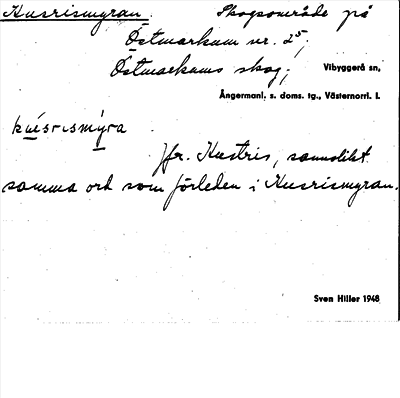 Kusrismyran. Skogsområde på
Östmarkum nr. 2⁵;
Östmarkums skog; Vibyggerå sn,
Ångermanl. s. doms. tg., Västernorrl. l.
kúsrɩsmýra
Jfr. Kustris, sannolikt
samma ord som förleden i Kusrismyran.
Sven Hiller 1948